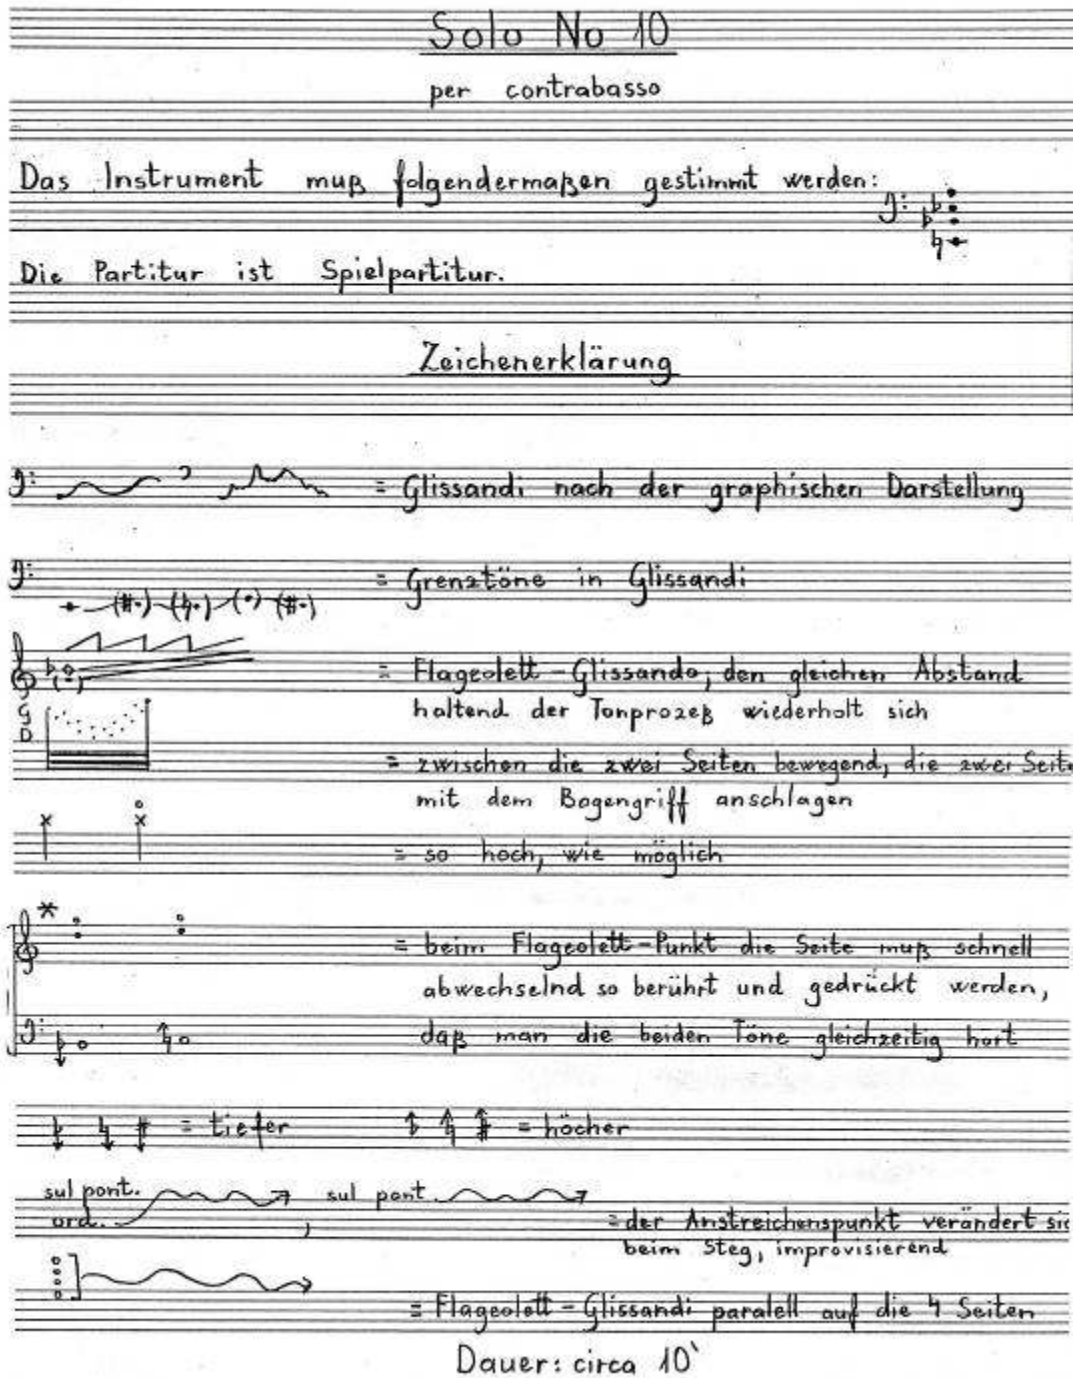 Solo No 10
per contrabasso
Das Instrument muß folgendermaßen gestimmt werden:
Die Partitur ist Spielpartitur.
Zeichenerklärung
= Glissandi nach der graphischen Darstellung
= Grenztöne in Glissandi
= Flageolett-Glissando; den gleichen Abstand
haltend der Tonprozeß wiederholt sich
G
D
= zwischen die zwei Seiten bewegend, die zwei Seite
mit dem Bogengriff anschlagen
= so hoch, wie möglich
*
= beim Flageolett-Punkt die Seite muß schnell
abwechselnd so berührt und gedrückt werden,
daß man die beiden Töne gleichzeitig hört
= tiefer = höcher
sul pont. sul pont.
ord. , = der Anstreichenspunkt verändert sic
beim Steg, improvisierend
= Flageolett-Glissandi paralell auf die 4 Seiten
Dauer: circa 10'